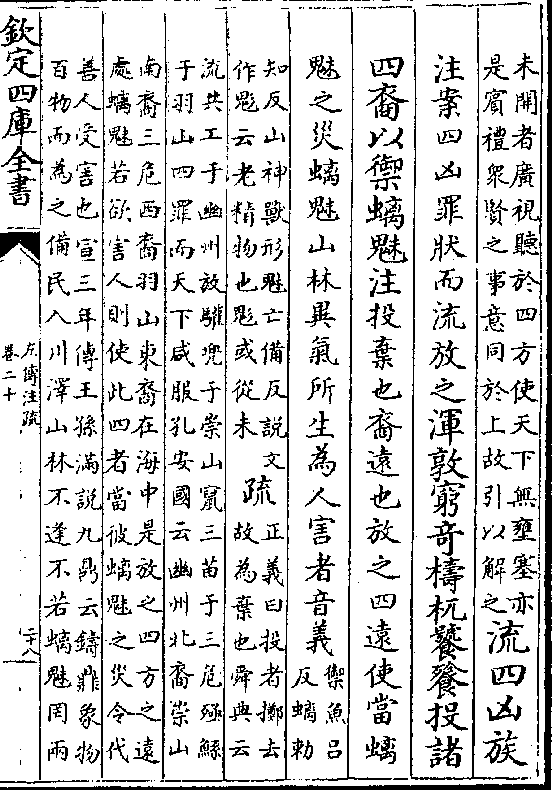 未開者廣視聽於四方使天下無壅塞亦
是賓禮衆賢之事意同於上故引以解之
流四凶族
注案四凶罪狀而流放之渾敦窮奇檮杌饕餮投諸
四裔以禦螭魅注投棄也裔遠也放之四遠使當螭
魅之災螭魅山林異氣所生為人害者音義
禦魚吕
反螭勅
知反山神獸形魅亡備反説文
作鬽云老精物也鬽或從未
疏
正義曰投者擲去
故為棄也舜典云
流共工于幽州放驩兜于崇山竄三苗于三危殛鯀
于羽山四罪而天下咸服孔安國云幽州北裔崇山
南裔三危西裔羽山東裔在海中是放之四方之遠
處螭魅若欲害人則使此四者當彼螭魅之災令代
善人受害也宣三年傳王孫滿説九鼎云鑄鼎象物
百物而為之備民入川澤山林不逢不若螭魅罔兩
欽定四庫全書
左傳注疏
卷二十
二十八